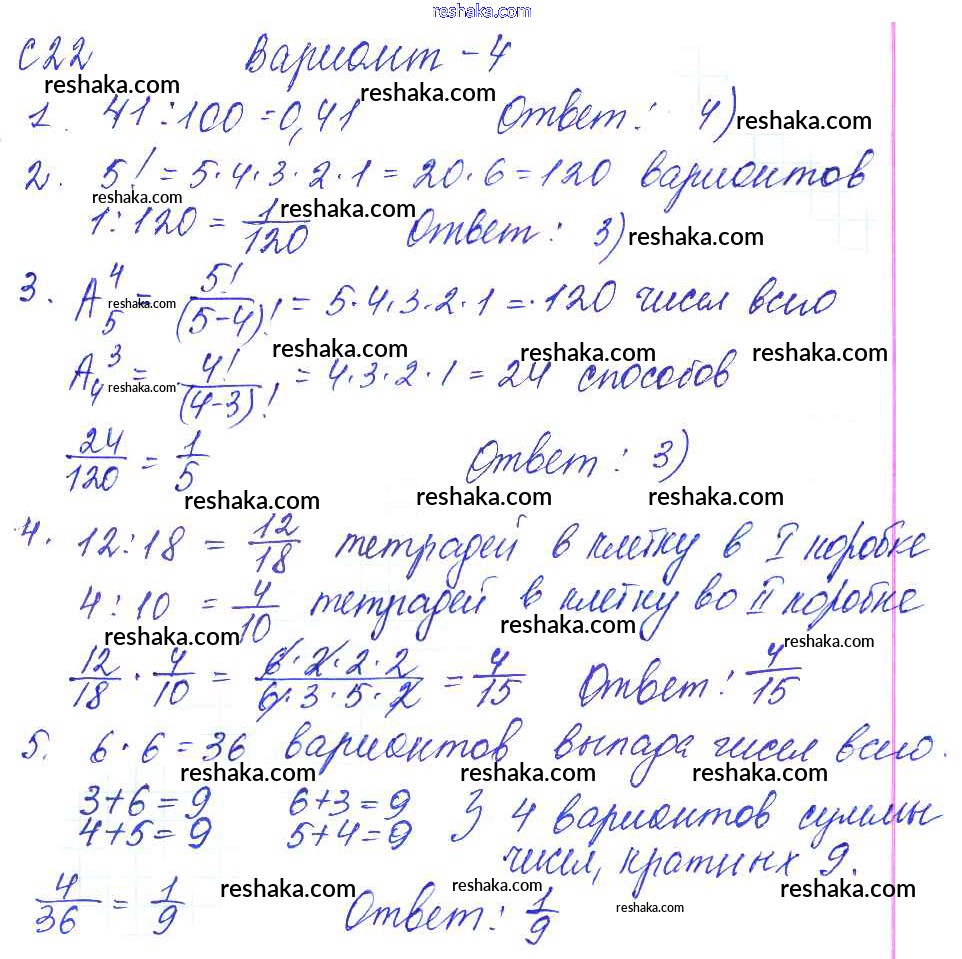 reshaka.com
С22 Вариант - 4
reshaka.com reshaka.com
1. 41 : 100 = 0,41 Ответ: 4) reshaka.com
2. 5! = 5·4·3·2·1 = 20·6 = 120 вариантов
1 : 120 = 1/120 reshaka.com Ответ: 3) reshaka.com
3. A₅⁴ reshaka.com = 5!/(5-4)! = 5·4·3·2·1 = 120 чисел всего
reshaka.com reshaka.com reshaka.com
A₄³ reshaka.com = 4!/(4-3)! = 4·3·2·1 = 24 способов
24/120 = 1/5 Ответ: 3)
reshaka.com reshaka.com reshaka.com
4. 12:18 = 12/18 тетрадей в клетку в I коробке
reshaka.com reshaka.com reshaka.com
4:10 = 4/10 тетрадей в клетку во II коробке
reshaka.com reshaka.com reshaka.com
12/18 · 4/10 = 6·2·2·2/6·3·5·2 = 4/15 Ответ: 4/15
5. 6·6 = 36 вариантов выпада чисел всего.
reshaka.com reshaka.com reshaka.com
3+6 = 9 6+3 = 9 } 4 вариантов суммы
4+5 = 9 5+4 = 9
чисел, кратных 9.
4/36 = 1/9 reshaka.com Ответ: 1/9 reshaka.com reshaka.com reshaka.com